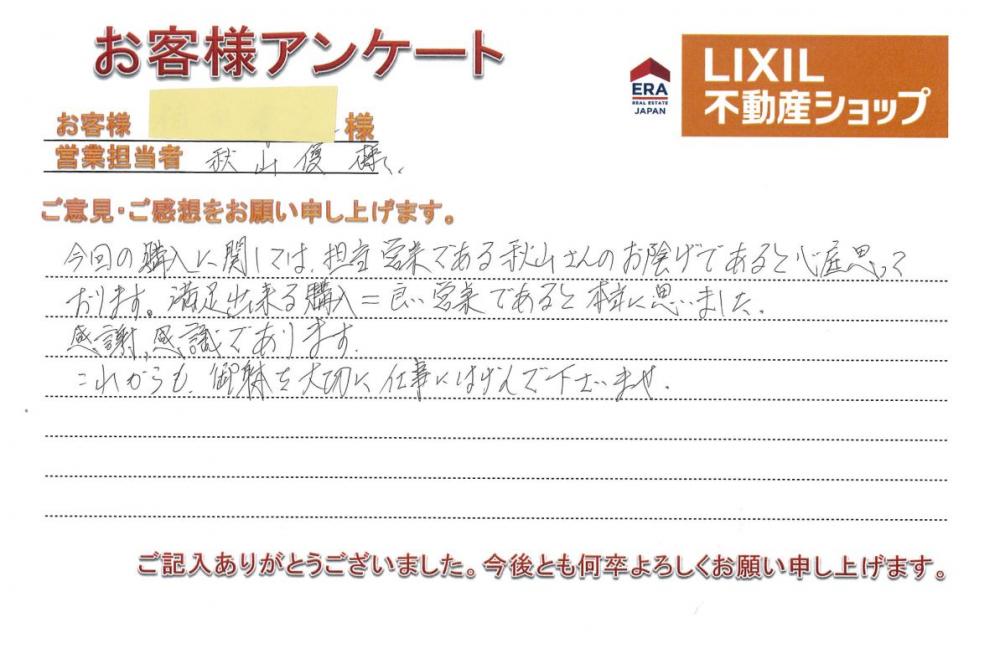 お客様アンケート
ERA
REAL ESTATE
JAPAN
LIXIL
不動産ショップ
お客様 様
営業担当者 秋山 優 様
ご意見・ご感想をお願い申し上げます。
今回の購入に関しては、担当営業である秋山さんのお陰げであると心底思って
おります。満足出来る購入=良い営業であると本当に思いました。
感謝、感謝であります。
これからも、御身体を大切に仕事にはげんで下さいませ。
ご記入ありがとうございました。今後とも何卒よろしくお願い申し上げます。